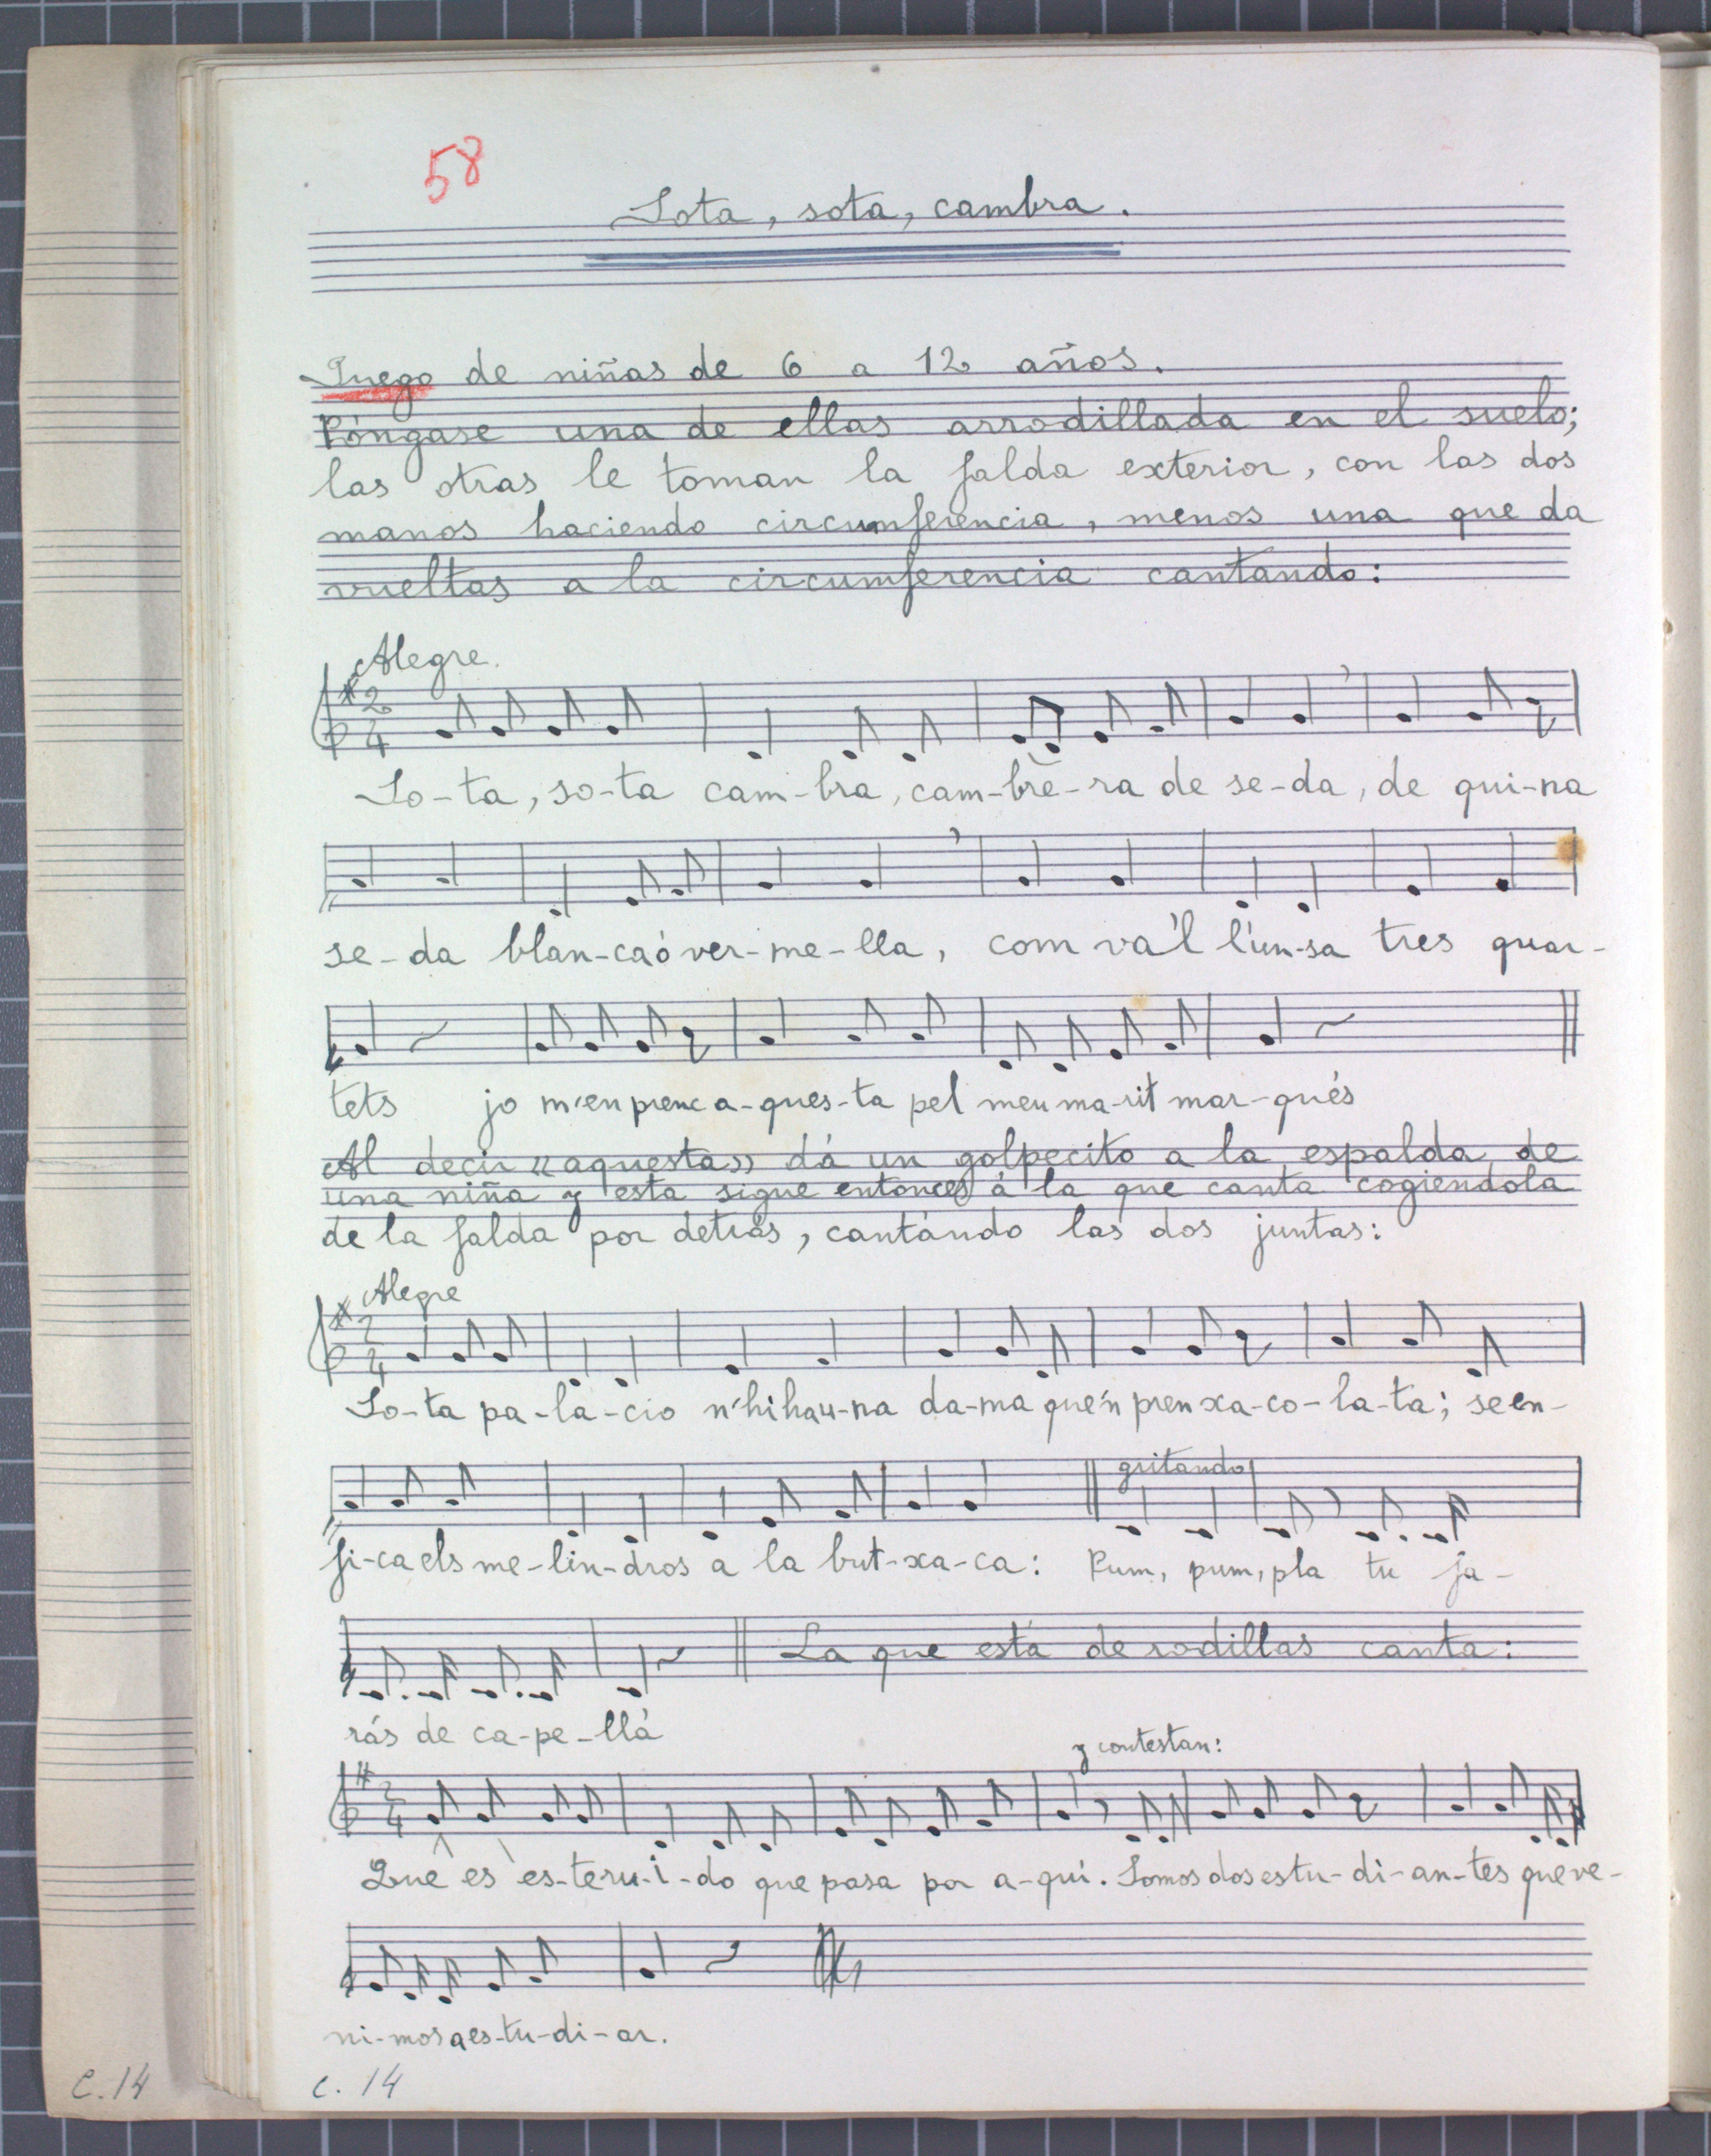 58
Sota, sota, cambra.
Juego de niñas de 6 a 12 años.
Póngase una de ellas arrodillada en el suelo;
las otras le toman la falda exterior, con las dos
manos haciendo circumferencia, menos una que da
vueltas a la circumferencia cantando:
Alegre.
2
4
So-ta, so-ta cam-bra, cam-bre-ra de se-da, de qui-na
se-da blan-ca ó ver-me-lla, com va'l l'un-sa tres quar-
tets jo m'en prenc a-ques-ta pel meu ma-rit mar-qués
Al decir «aquesta» dá un golpecito a la espalda de
una niña y esta sigue entonces á la que canta cogiendola
de la falda por detrás, cantándo las dos juntas:
Alegre
2
4
So-ta pa-la-cio n'hi ha u-na da-ma que'n pren xa-co-la-ta; se en-
fi-ca els me-lin-dros a la but-xa-ca: Pum, pum, pla tu fa-
gritando
rás de ca-pe-llá
La que está de rodillas canta:
y contestan:
2
4
Que es es-te ru-i-do que pasa por a-qui. Somos dos estu-di-an-tes que ve-
ni-mos a es-tu-di-ar.
C. 14
C. 14